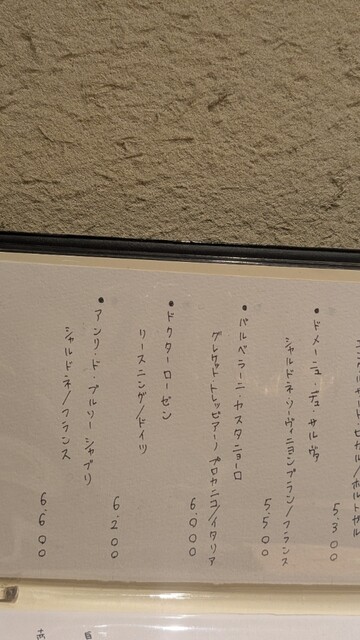 ポルトガル
5.300
• ドメーニュ・デュ・サルヴァ
シャルドネ・ソーヴィニヨンブラン/フランス
5.500
• バルベラーニ・カスタニョーロ
グレケット トレッビアーノ プロカニコ/イタリア
6.000
• ドクターローゼン
リースニング/ドイツ
6.200
• アンリ・ド・ブルソー シャブリ
シャルドネ/フランス
6.600